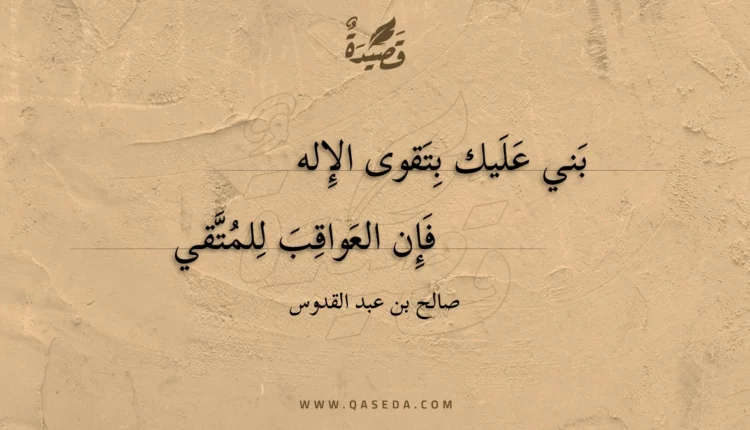 قَصِيْدَةٌ
بَني عَلَيك بِتَقوى الإِله
فَإِن العَواقِبَ لِلمُتَّقي
صالح بن عبد القدوس
WWW.QASEDA.COM